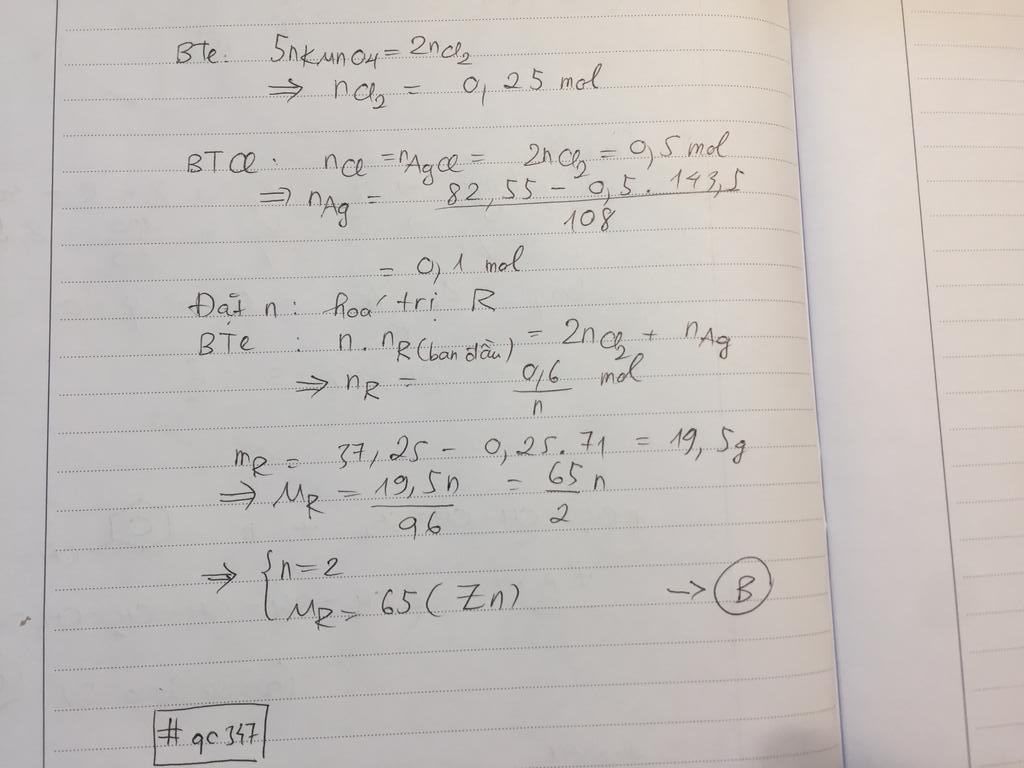 BTe: 5nKMnO4 = 2nCl2
⇒ nCl2 = 0,25 mol
BTCl: nCl = nAgCl = 2nCl2 = 0,5 mol
⇒ nAg = (82,55 - 0,5.143,5)/108
= 0,1 mol
Đặt n: hoá trị R
BTe: n.nR(ban đầu) = 2nCl2 + nAg
⇒ nR = 0,6/n mol
mR = 37,25 - 0,25.71 = 19,5g
⇒ MR = 19,5n/0,6 = 65/2 n
⇒ { n=2
MR = 65 (Zn) → B
#qc347